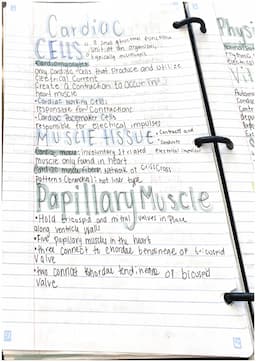 Cardiac
CELLS • a small structural functional
unit of an organism,
typically
only cardiac cells that produce and utilize
electrical current
Create a contraction to occur in
heart muscle
• Cardiac working cells
responsible for contractions
• Cardiac Pacemaker Cells
responsible for electrical impulses
MUSCLE tissue • Contracts and
Conducts
electrical impulses
Cardiac muscle: involuntary striated
muscle only found in heart
Cardiac muscle fibers: network of CrissCross
Patterns (branching)
Papillary Muscle
• Hold tricuspid and mitral valves in place
along ventricle walls
• Five papillary muscles in the heart
• three connect to chordae tendineae of tricuspid
valve
• two connect chordae tendineae of bicuspid
valve
Physi
Vit